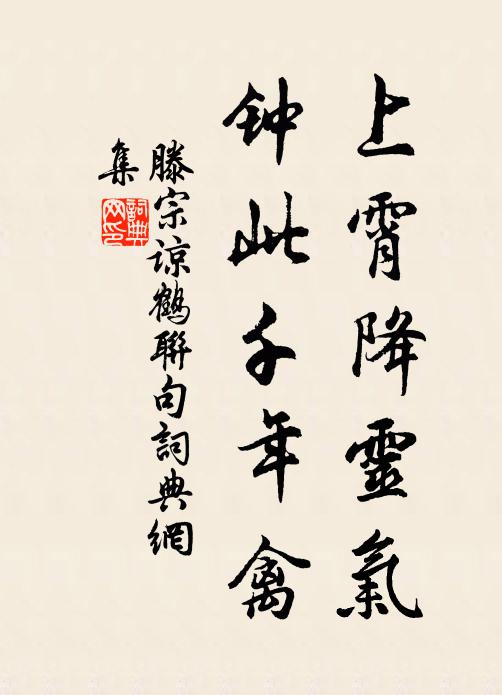 上霄降靈氣
钟此千年禽
滕宗諒鶴聯句詞典網
集
詞典網印